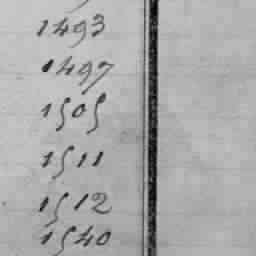 1493
1497
1505
1511
1512
1540